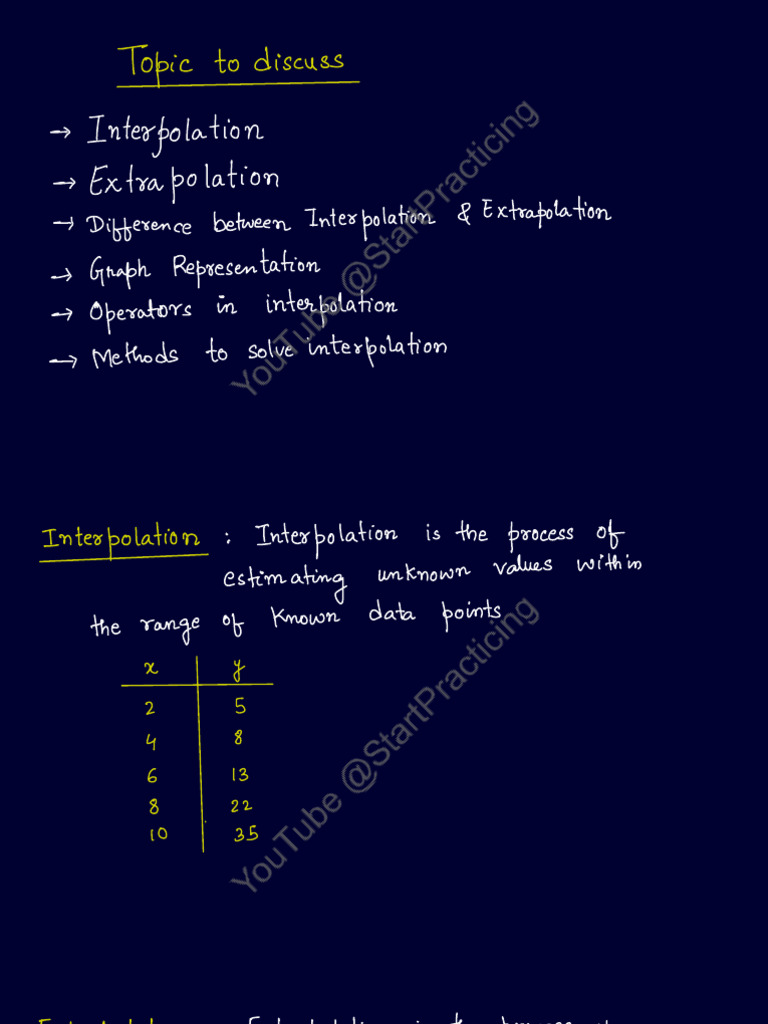 Topic to discuss
→ Interpolation
→ Extrapolation
→ Difference between Interpolation & Extrapolation
→ Graph Representation
→ Operators in interpolation
→ Methods to solve interpolation
YouTube @StartPracticing
Interpolation : Interpolation is the process of
estimating unknown values within
the range of known data points
x y
2 5
4 8
6 13
8 22
10 35
YouTube @StartPracticing